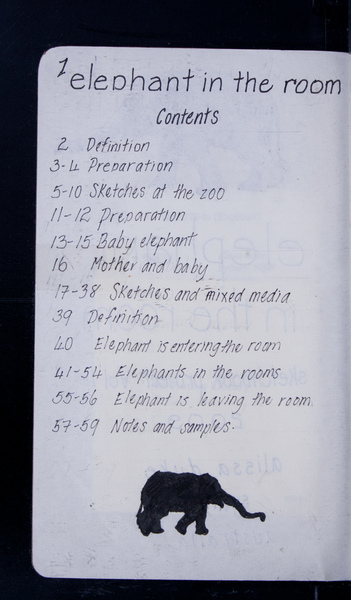 1
elephant in the room
Contents
2 Definition
3-4 Preparation
5-10 Sketches at the zoo
11-12 Preparation
13-15 Baby elephant
16 Mother and baby
17-38 Sketches and mixed media
39 Definition
40 Elephant is entering the room
41-54 Elephants in the rooms
55-56 Elephant is leaving the room
57-59 Notes and samples.